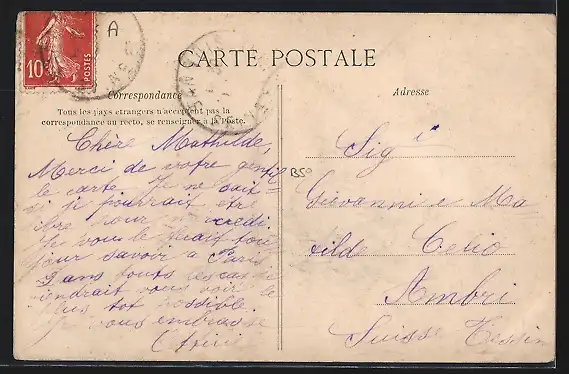 A
10
POSTES
CARTE POSTALE
Correspondance
Tous les pays étrangers n'acceptent pas la
correspondance au recto, se renseigner à la Poste.
Chère Mathilde,
Merci de votre gentil-
le carte. Je ne sait
si je pourrait etre
libre pour
Je vous le
pour savoir a Paris
Dans touts les cas je
viendrait vous voir le
plus tot possible.
Je vous embrasse
B50
Adresse
Sigi
Giovanni e Ma-
tilde Celio
Ambri
Suisse Tessin